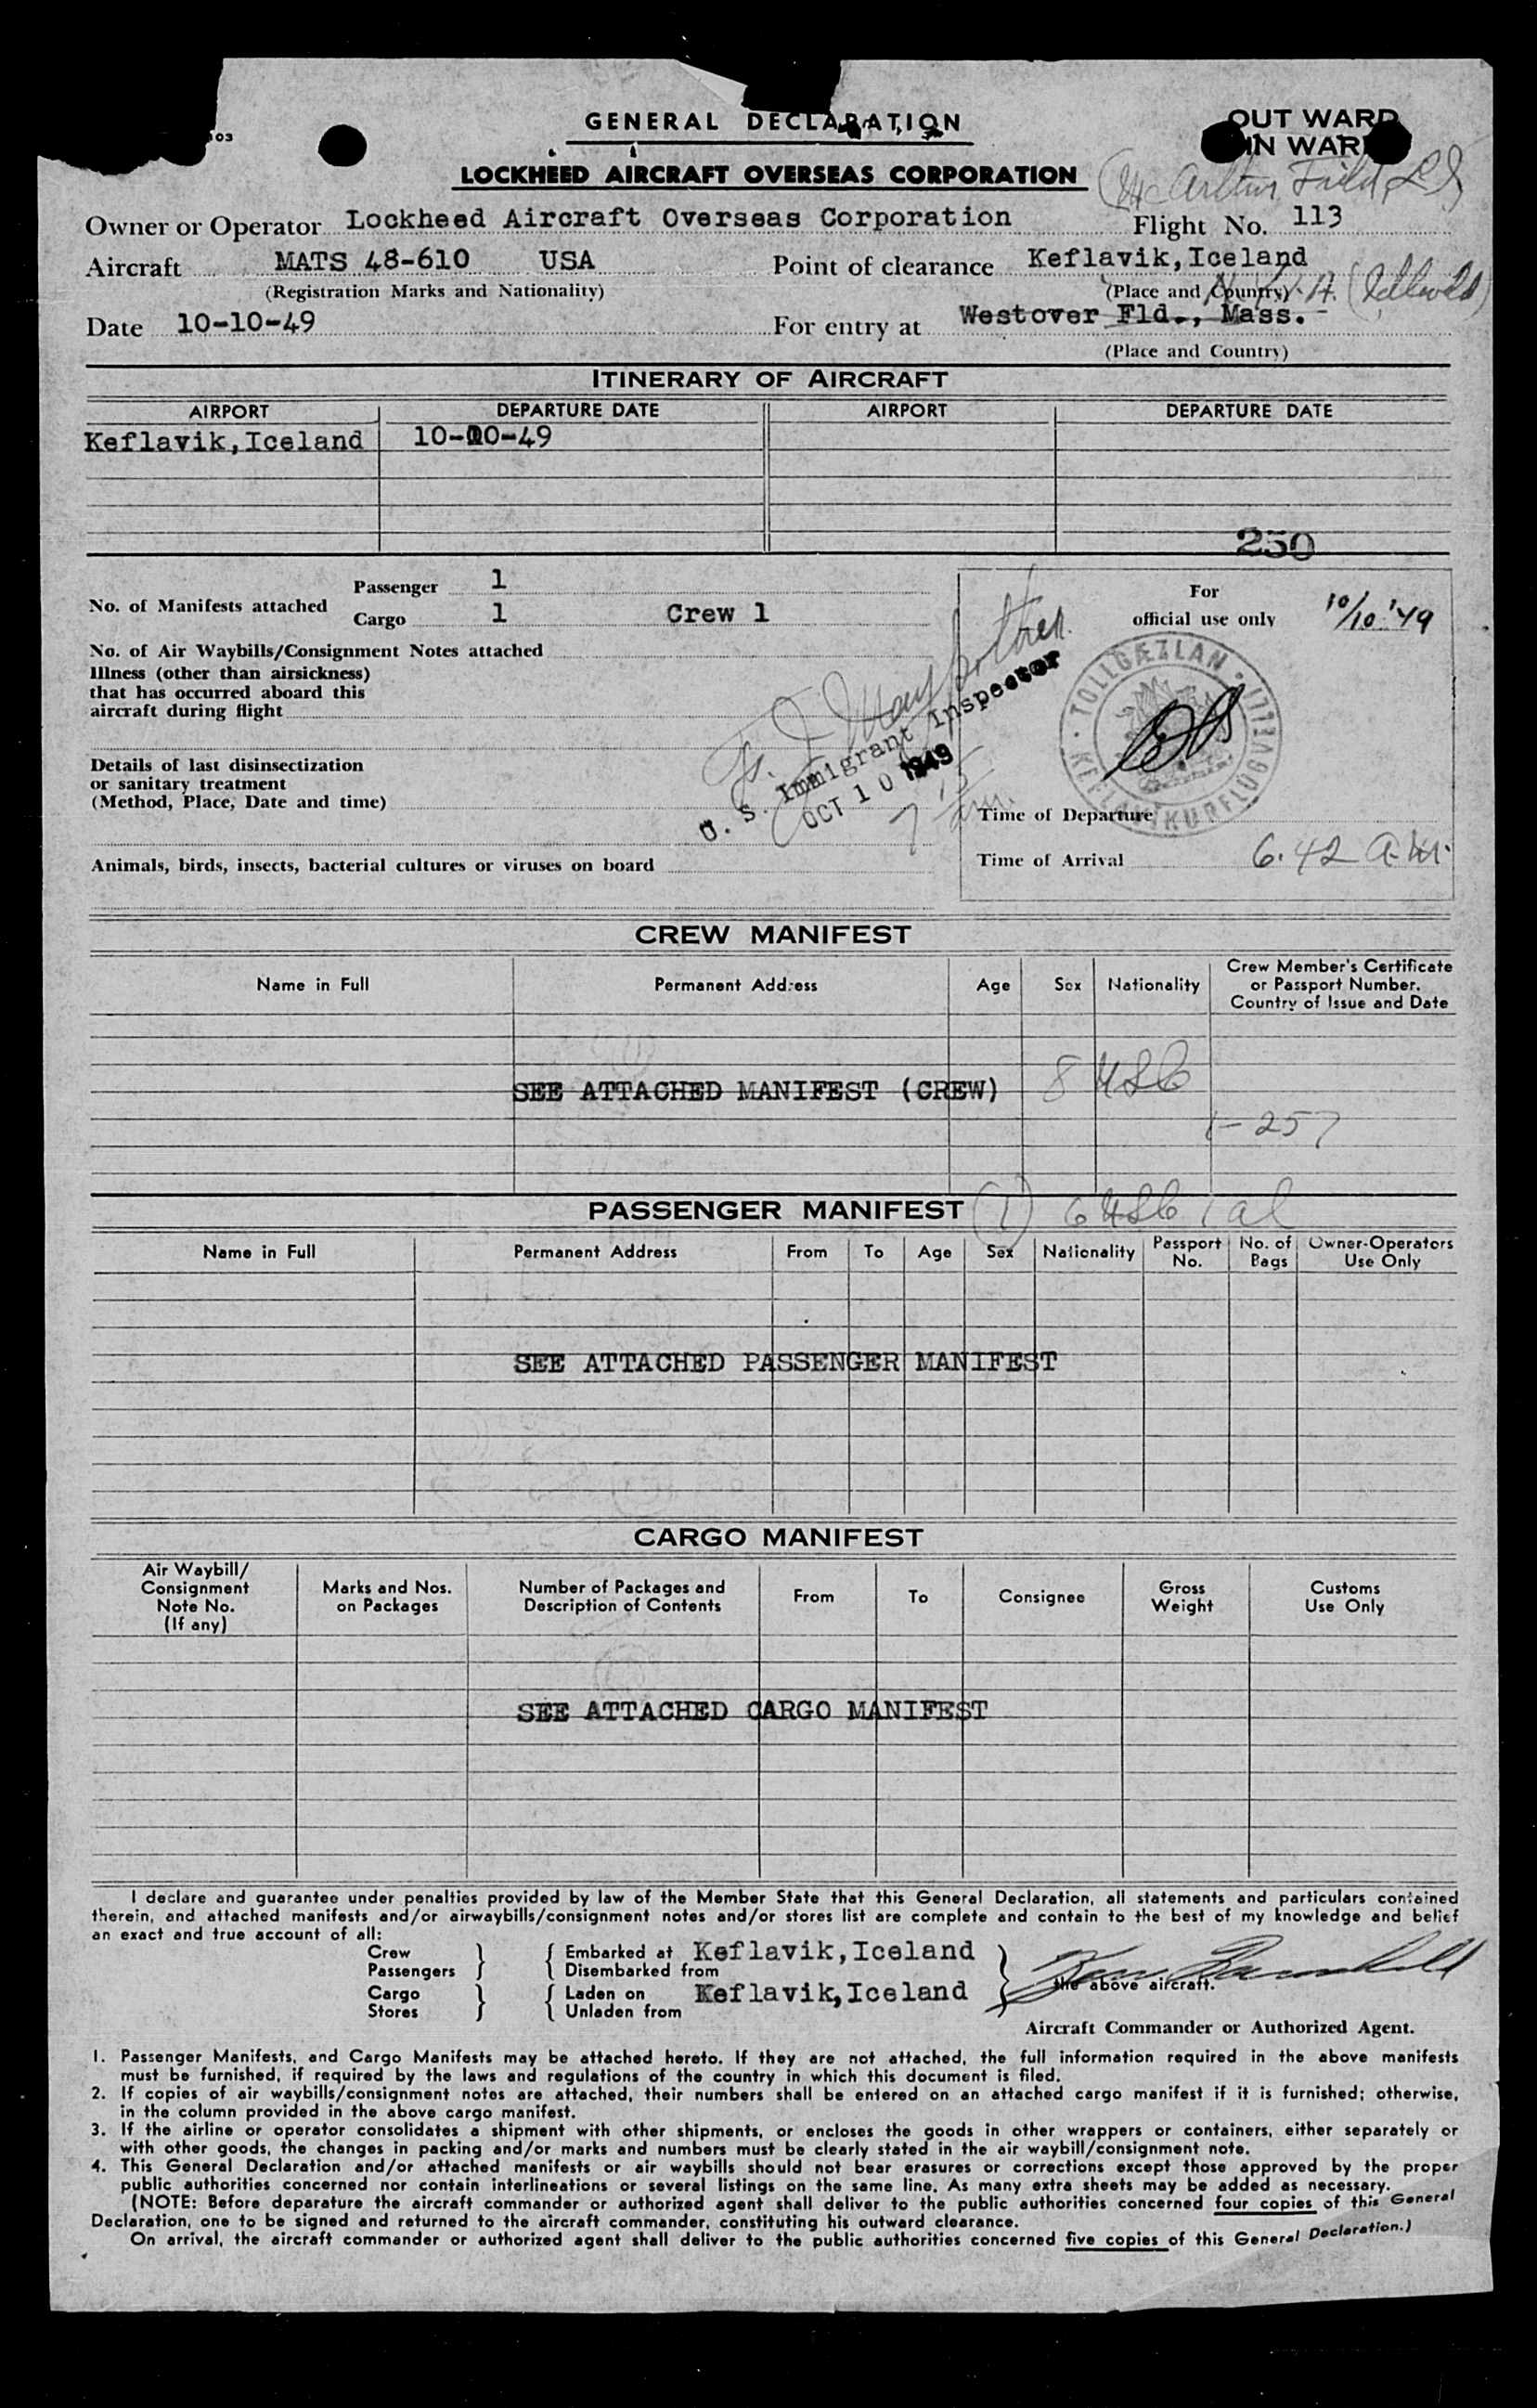 03
GENERAL DECLARATION
OUT WARD
IN WARD
LOCKHEED AIRCRAFT OVERSEAS CORPORATION
Owner or Operator Lockheed Aircraft Overseas Corporation Flight No. 113
Aircraft MATS 48-610 USA Point of clearance Keflavik, Iceland
(Registration Marks and Nationality) (Place and Country)
Date 10-10-49 For entry at Westover Fld., Mass.
(Place and Country)
ITINERARY OF AIRCRAFT
AIRPORT DEPARTURE DATE AIRPORT DEPARTURE DATE
Keflavik, Iceland 10-10-49
250
No. of Manifests attached Passenger 1
Cargo 1 Crew 1
For official use only 10/10 '49
No. of Air Waybills/Consignment Notes attached
Illness (other than airsickness)
that has occurred aboard this
aircraft during flight
TOLLGÆZLAN KEFLAVIKURFLUGVELLI
U. S. Immigrant Inspector
OCT 10 1949
Details of last disinsectization
or sanitary treatment
(Method, Place, Date and time)
Time of Departure
Time of Arrival 6.42 a.m.
Animals, birds, insects, bacterial cultures or viruses on board
CREW MANIFEST
Name in Full Permanent Address Age Sex Nationality Crew Member's Certificate or Passport Number. Country of Issue and Date
SEE ATTACHED MANIFEST (CREW) 8 USC
1-257
PASSENGER MANIFEST (1) 6 USC 1 al
Name in Full Permanent Address From To Age Sex Nationality Passport No. No. of Bags Owner-Operators Use Only
SEE ATTACHED PASSENGER MANIFEST
CARGO MANIFEST
Air Waybill/ Consignment Note No. (If any) Marks and Nos. on Packages Number of Packages and Description of Contents From To Consignee Gross Weight Customs Use Only
SEE ATTACHED CARGO MANIFEST
I declare and guarantee under penalties provided by law of the Member State that this General Declaration, all statements and particulars contained
therein, and attached manifests and/or airwaybills/consignment notes and/or stores list are complete and contain to the best of my knowledge and belief
an exact and true account of all:
Crew Embarked at Keflavik, Iceland
Passengers Disembarked from
Cargo Laden on Keflavik, Iceland the above aircraft.
Stores Unladen from
Aircraft Commander or Authorized Agent.
1. Passenger Manifests, and Cargo Manifests may be attached hereto. If they are not attached, the full information required in the above manifests
must be furnished, if required by the laws and regulations of the country in which this document is filed.
2. If copies of air waybills/consignment notes are attached, their numbers shall be entered on an attached cargo manifest if it is furnished; otherwise,
in the column provided in the above cargo manifest.
3. If the airline or operator consolidates a shipment with other shipments, or encloses the goods in other wrappers or containers, either separately or
with other goods, the changes in packing and/or marks and numbers must be clearly stated in the air waybill/consignment note.
4. This General Declaration and/or attached manifests or air waybills should not bear erasures or corrections except those approved by the proper
public authorities concerned nor contain interlineations or several listings on the same line. As many extra sheets may be added as necessary.
(NOTE: Before deparature the aircraft commander or authorized agent shall deliver to the public authorities concerned four copies of this General
Declaration, one to be signed and returned to the aircraft commander, constituting his outward clearance.
On arrival, the aircraft commander or authorized agent shall deliver to the public authorities concerned five copies of this General Declaration.)